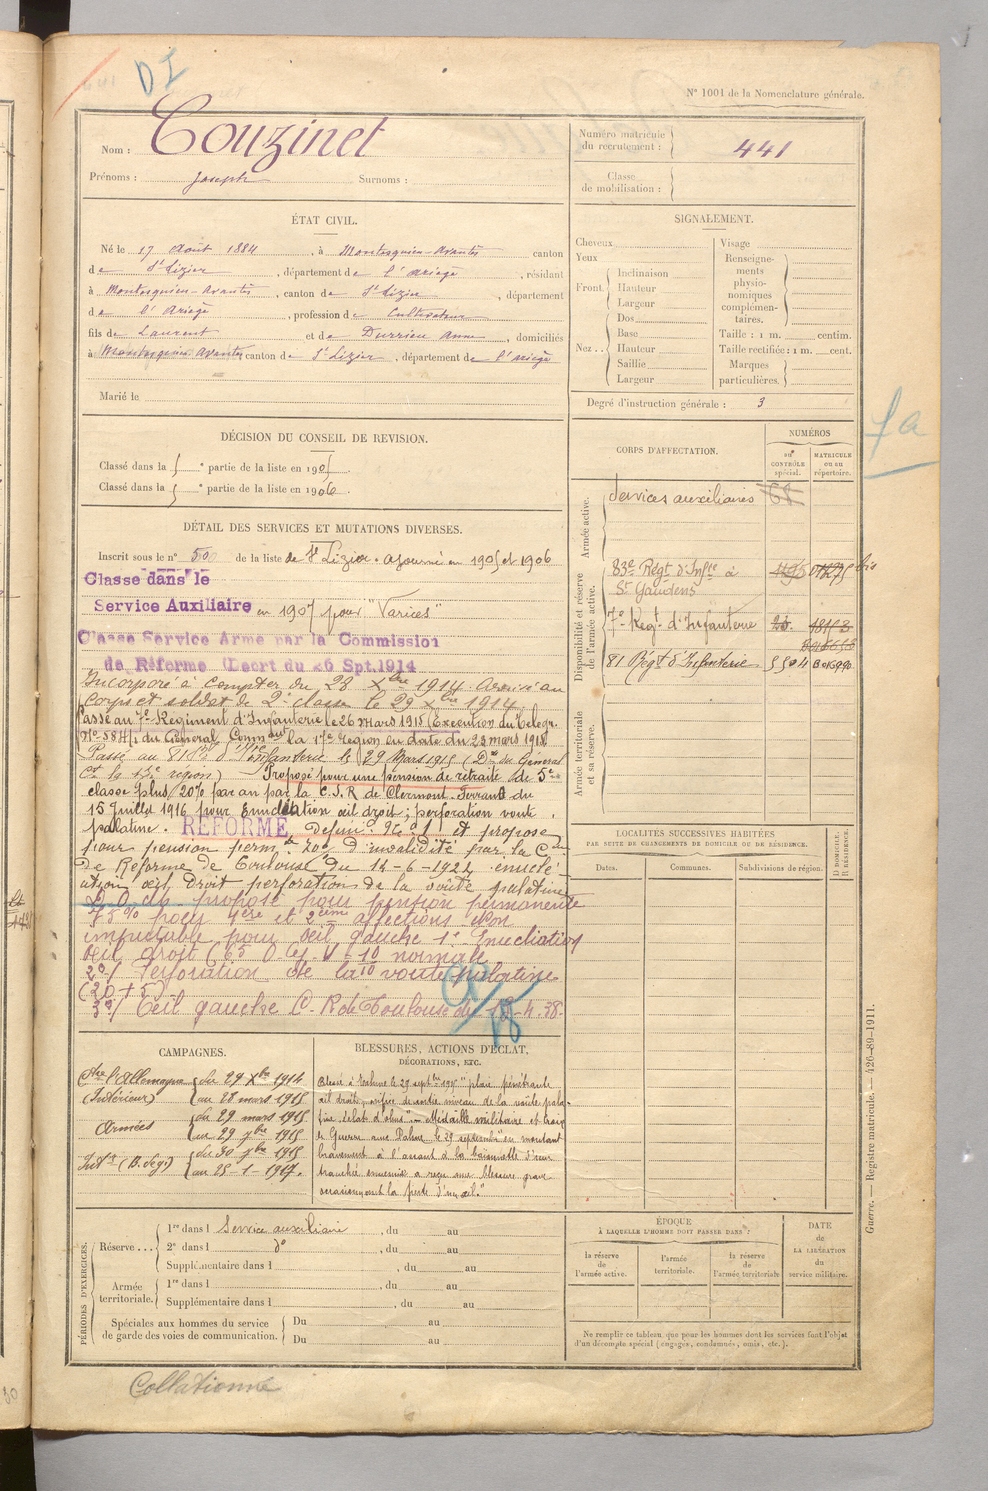 DI
N° 1001 de la Nomenclature générale.
Nom : Couzinet
Prénoms : Joseph Surnoms :
Numéro matricule du recrutement : 441
Classe de mobilisation :
ÉTAT CIVIL.
Né le 17 Août 1884, à Montesquieu-Avantès canton
de St Lizier, département de l'Ariège, résidant
à Montesquieu-Avantès, canton de St Lizier, département
de l'Ariège, profession de Cultivateur
fils de Laurent et de Durrieu Anne, domiciliés
à Montesquieu Avantès canton de St Lizier, département de l'Ariège
Marié le
SIGNALEMENT.
Cheveux
Yeux
Front. Inclinaison
Hauteur
Largeur
Nez.. Dos
Base
Hauteur
Saillie
Largeur
Visage
Renseignements physionomiques complémentaires.
Taille : 1 m. centim.
Taille rectifiée : 1 m. cent.
Marques particulières.
Degré d'instruction générale : 3
DÉCISION DU CONSEIL DE REVISION.
Classé dans la ° partie de la liste en 1905.
Classé dans la ° partie de la liste en 1906.
DÉTAIL DES SERVICES ET MUTATIONS DIVERSES.
Inscrit sous le n° 50 de la liste de St Lizier. Ajourné en 1905 et 1906
Classé dans le
Service Auxiliaire en 1907 pour "Varices"
Classé Service Armé par la Commission
de Réforme (Décret du 26 Spt. 1914
Incorporé à compter du 28 Xbre 1914. Arrivé au
Corps et soldat de 2e classe le 29 Xbre 1914
Passé au 7e Régiment d'Infanterie le 26 mars 1915 (Exécution du Télégr.
du Général Comm dt la 17e Région en date du 23 mars 1915
Passé au 81me d'Infanterie le 29 Mars 1915 (Don du Général
Ct la 17e région) Proposé pour une pension de retraite de 5e
classe plus (20% par an par la C.S.R de Clermont-Ferrand du
15 Juillet 1916 pour Enucléation œil droit ; perforation voute
palatine. RÉFORMÉ Défin. N° 1 et proposé
pour pension perm. 20% d'invalidité par la Con
de Réforme de Toulouse du 14-6-1922 énuclé-
ation œil droit perforation de la voûte palatine
proposé pour pension permanente
75% pour 1ère et 2ème affections Non
imputable pour œil gauche 1° Enucléation
Œil droit (65
normale
2°/ Perforation de la voute palatine
(20 + 5)
3°/ Œil gauche C. R de Toulouse du 12-4-38.
CORPS D'AFFECTATION.
NUMÉROS
au CONTRÔLE spécial.
MATRICULE ou au répertoire.
Armée active.
Services auxiliaires 68
Disponibilité et réserve de l'armée active.
83e Régt d'Infie à
St Gaudens
7e Regt d'Infanterie
81 Régt d'Infanterie 5504
Armée territoriale et sa réserve.
LOCALITÉS SUCCESSIVES HABITÉES
PAR SUITE DE CHANGEMENTS DE DOMICILE OU DE RÉSIDENCE.
Dates. Communes. Subdivisions de région.
D. DOMICILE. R. RÉSIDENCE.
CAMPAGNES.
Ctre l'Allemagne du 29 Xbre 1914
(Intérieur) au 28 mars 1915
Armées du 29 mars 1915
au 29 7bre 1915
Intr (B. de g.) du 30 7bre 1915
au 25-1-1917.
BLESSURES, ACTIONS D'ÉCLAT,
DÉCORATIONS, ETC.
Blessé à Tahure le 29 septbre 1915 "plaie pénétrante
œil droit, orifice de sortie niveau de la voûte pala-
tine éclat d'obus" – Médaille militaire et Croix
de Guerre avec Palme, le 29 septembre en montant
bravement à l'assaut à la baïonnette d'une
tranchée ennemie a reçu une blessure grave
occasionnant la perte d'un œil."
PÉRIODES D'EXERCICES.
Réserve... 1re dans l Service auxiliaire, du au
2e dans l d°, du au
Supplémentaire dans l, du au
Armée territoriale. 1re dans l, du au
Supplémentaire dans l, du au
Spéciales aux hommes du service de garde des voies de communication. Du au
Du au
ÉPOQUE
À LAQUELLE L'HOMME DOIT PASSER DANS :
la réserve de l'armée active.
l'armée territoriale.
la réserve de l'armée territoriale
DATE DE LA LIBÉRATION du service militaire.
Ne remplir ce tableau que pour les hommes dont les services font l'objet
d'un décompte spécial (engagés, condamnés, omis, etc.).
Guerre. — Registre matricule. — 426-89-1911.
Collationné